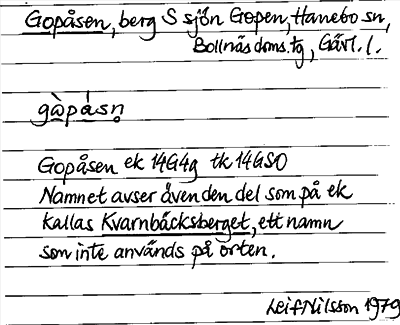 Gopåsen, berg S sjön Gopen, Hanebo sn,
Bollnäs doms. tg, Gävl. l.
gὼpásn̥
Gopåsen ek 14G4g tk 14GSO
Namnet avser även den del som på ek
kallas Kvarnbäcksberget, ett namn
som inte används på orten.
Leif Nilsson 1979